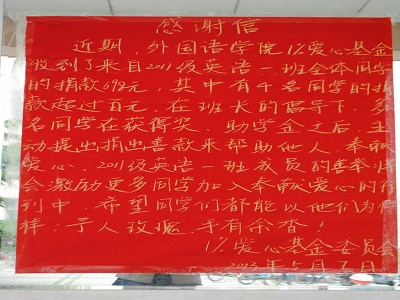 感谢信
近期，外国语学院1%爱心基金
收到了来自2011级英语一班全体同学
的捐款698元，其中有千名同学的捐
款超过百元。在班长的倡导下，多
名同学在获得奖、助学金之后主
动提出捐出善款来帮助他人，奉献
爱心。2011级英语一班成员的善举将
会激励更多同学加入奉献爱心的行
列中，希望同学们都能以他们为榜
样：予人玫瑰，手有余香！
1%爱心基金委员会
年5月7日